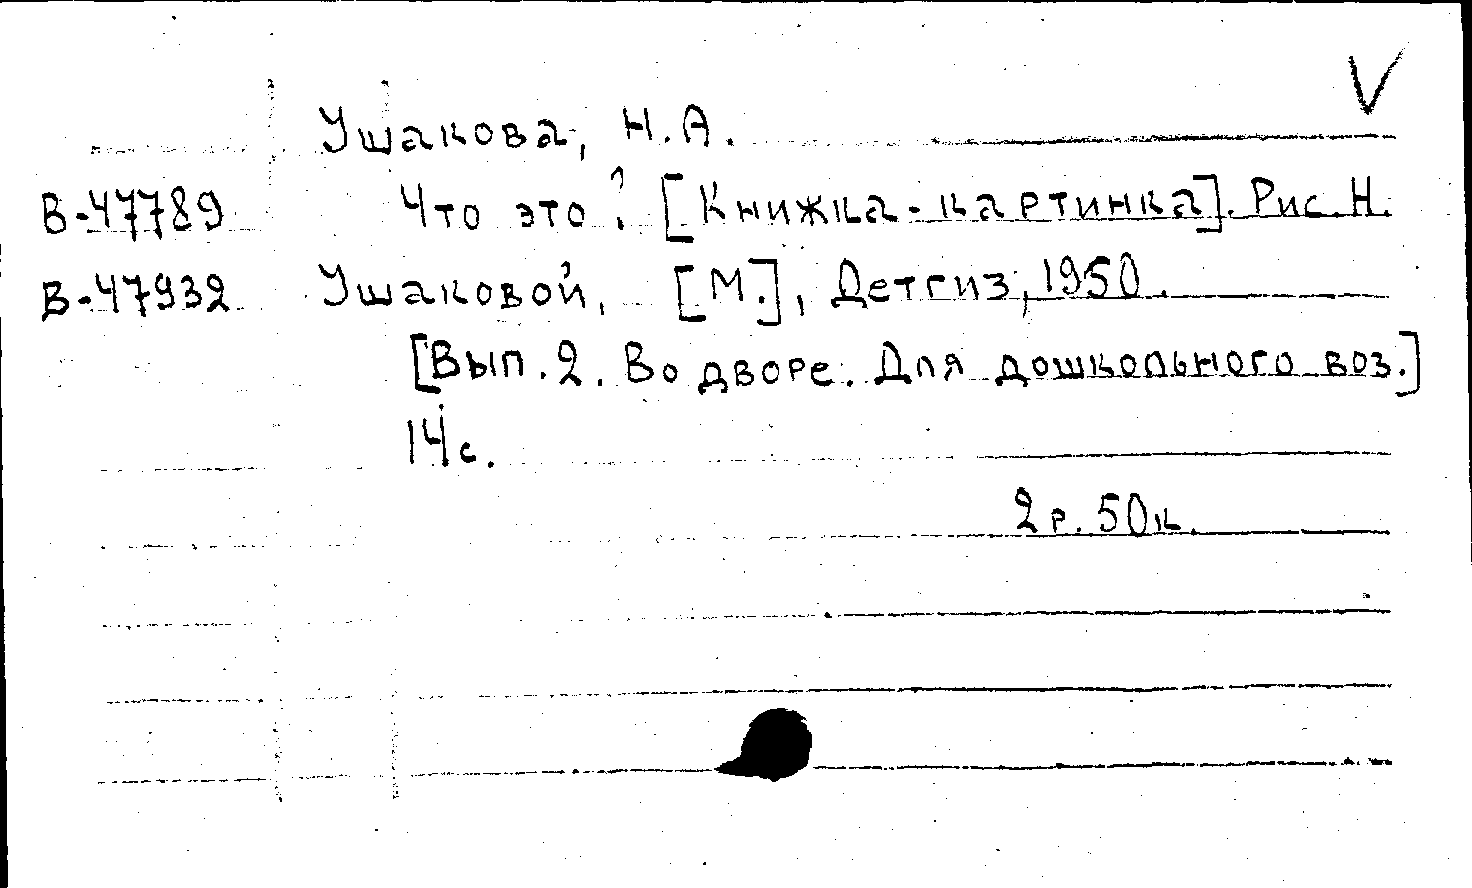 V
Ушакова, Н.А.
В-47789 Что это? [Книжка-картинка]. Рис. Н.
В-47932 Ушаковой, [М.], Детгиз, 1950.
[Вып. 2. Во дворе. Для дошкольного воз.]
14 с.
2 р. 50 к.